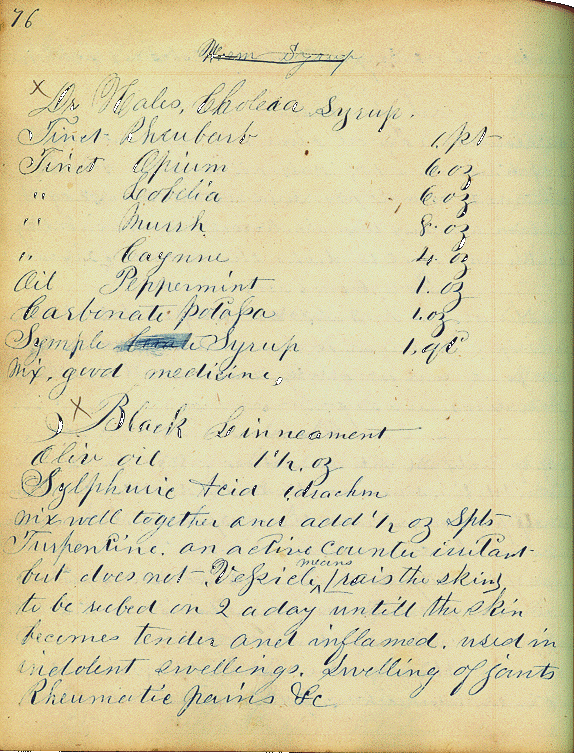 76
Worm Syrup
x
Dr Hales, Cholera Syrup.
Tinct Rheubarb 1 pt
Tinct Opium 6 oz
" Lobelia 6 oz
" Murrh 8 oz
" Caynne 4 oz
Oil Peppermint 1. oz
Carbonate potassa 1. oz
Symple Syrup 1. qt
Mx. good medicine.
x
Black Linneament
Oliv oil 1 1/2. oz
Sylphuric Acid 1 drachm
mx well together and add 1/2 oz Spts
Turpentine. an active counter irritant
but does not Vessicle, means (rais the skin)
to be rubed on 2 a day untill the skin
becomes tender and inflamed. used in
indolent swellings. Swelling of joints
Rheumatic pains &c